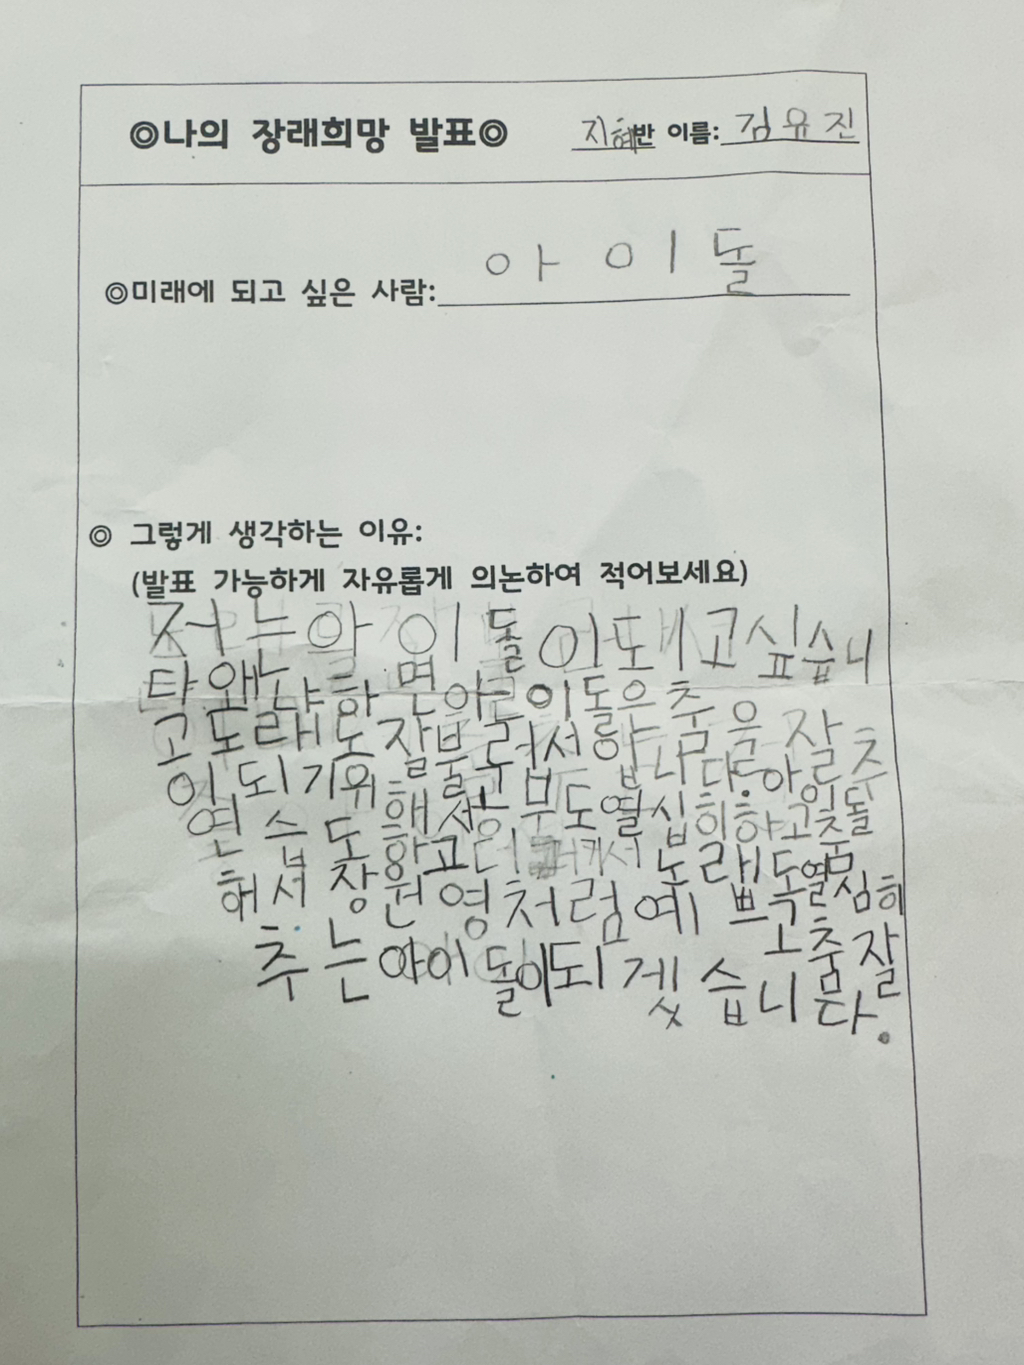 ◎나의 장래희망 발표◎ 지혜반 이름: 김유진
◎미래에 되고 싶은 사람: 아이돌
◎ 그렇게 생각하는 이유:
(발표 가능하게 자유롭게 의논하여 적어보세요)
저는아이돌이되고싶습니
다왜냐하면아이돌은춤을잘추
고노래도잘불러서입니다.아이돌
이되기위해서공부도열심히하고춤
연습도하고 커서노래도열심히
해서장원영처럼예쁘고춤잘
추는아이돌이되겟습니다.